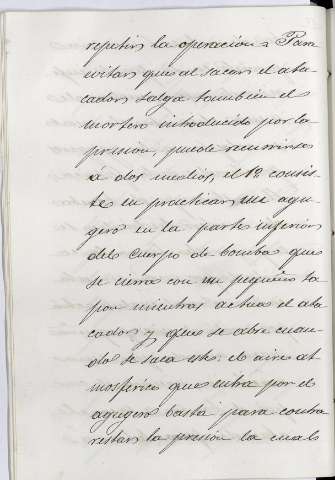 repetir la operacion. Para
evitar que al sacar el ata-
cador salga tambien el
mortero introducido por la
presion, puede recurrirse
á dos medios, el 1º consis-
te en practicar un agu-
gero en la parte inferior
del cuerpo de bomba que
se cierra con un pequeño ta
pon mientras actua el ata
cador y que se abre cuan-
do se saca este: el aire at
mosferico que entra por el
agugero basta para contra
restar la presion la cual